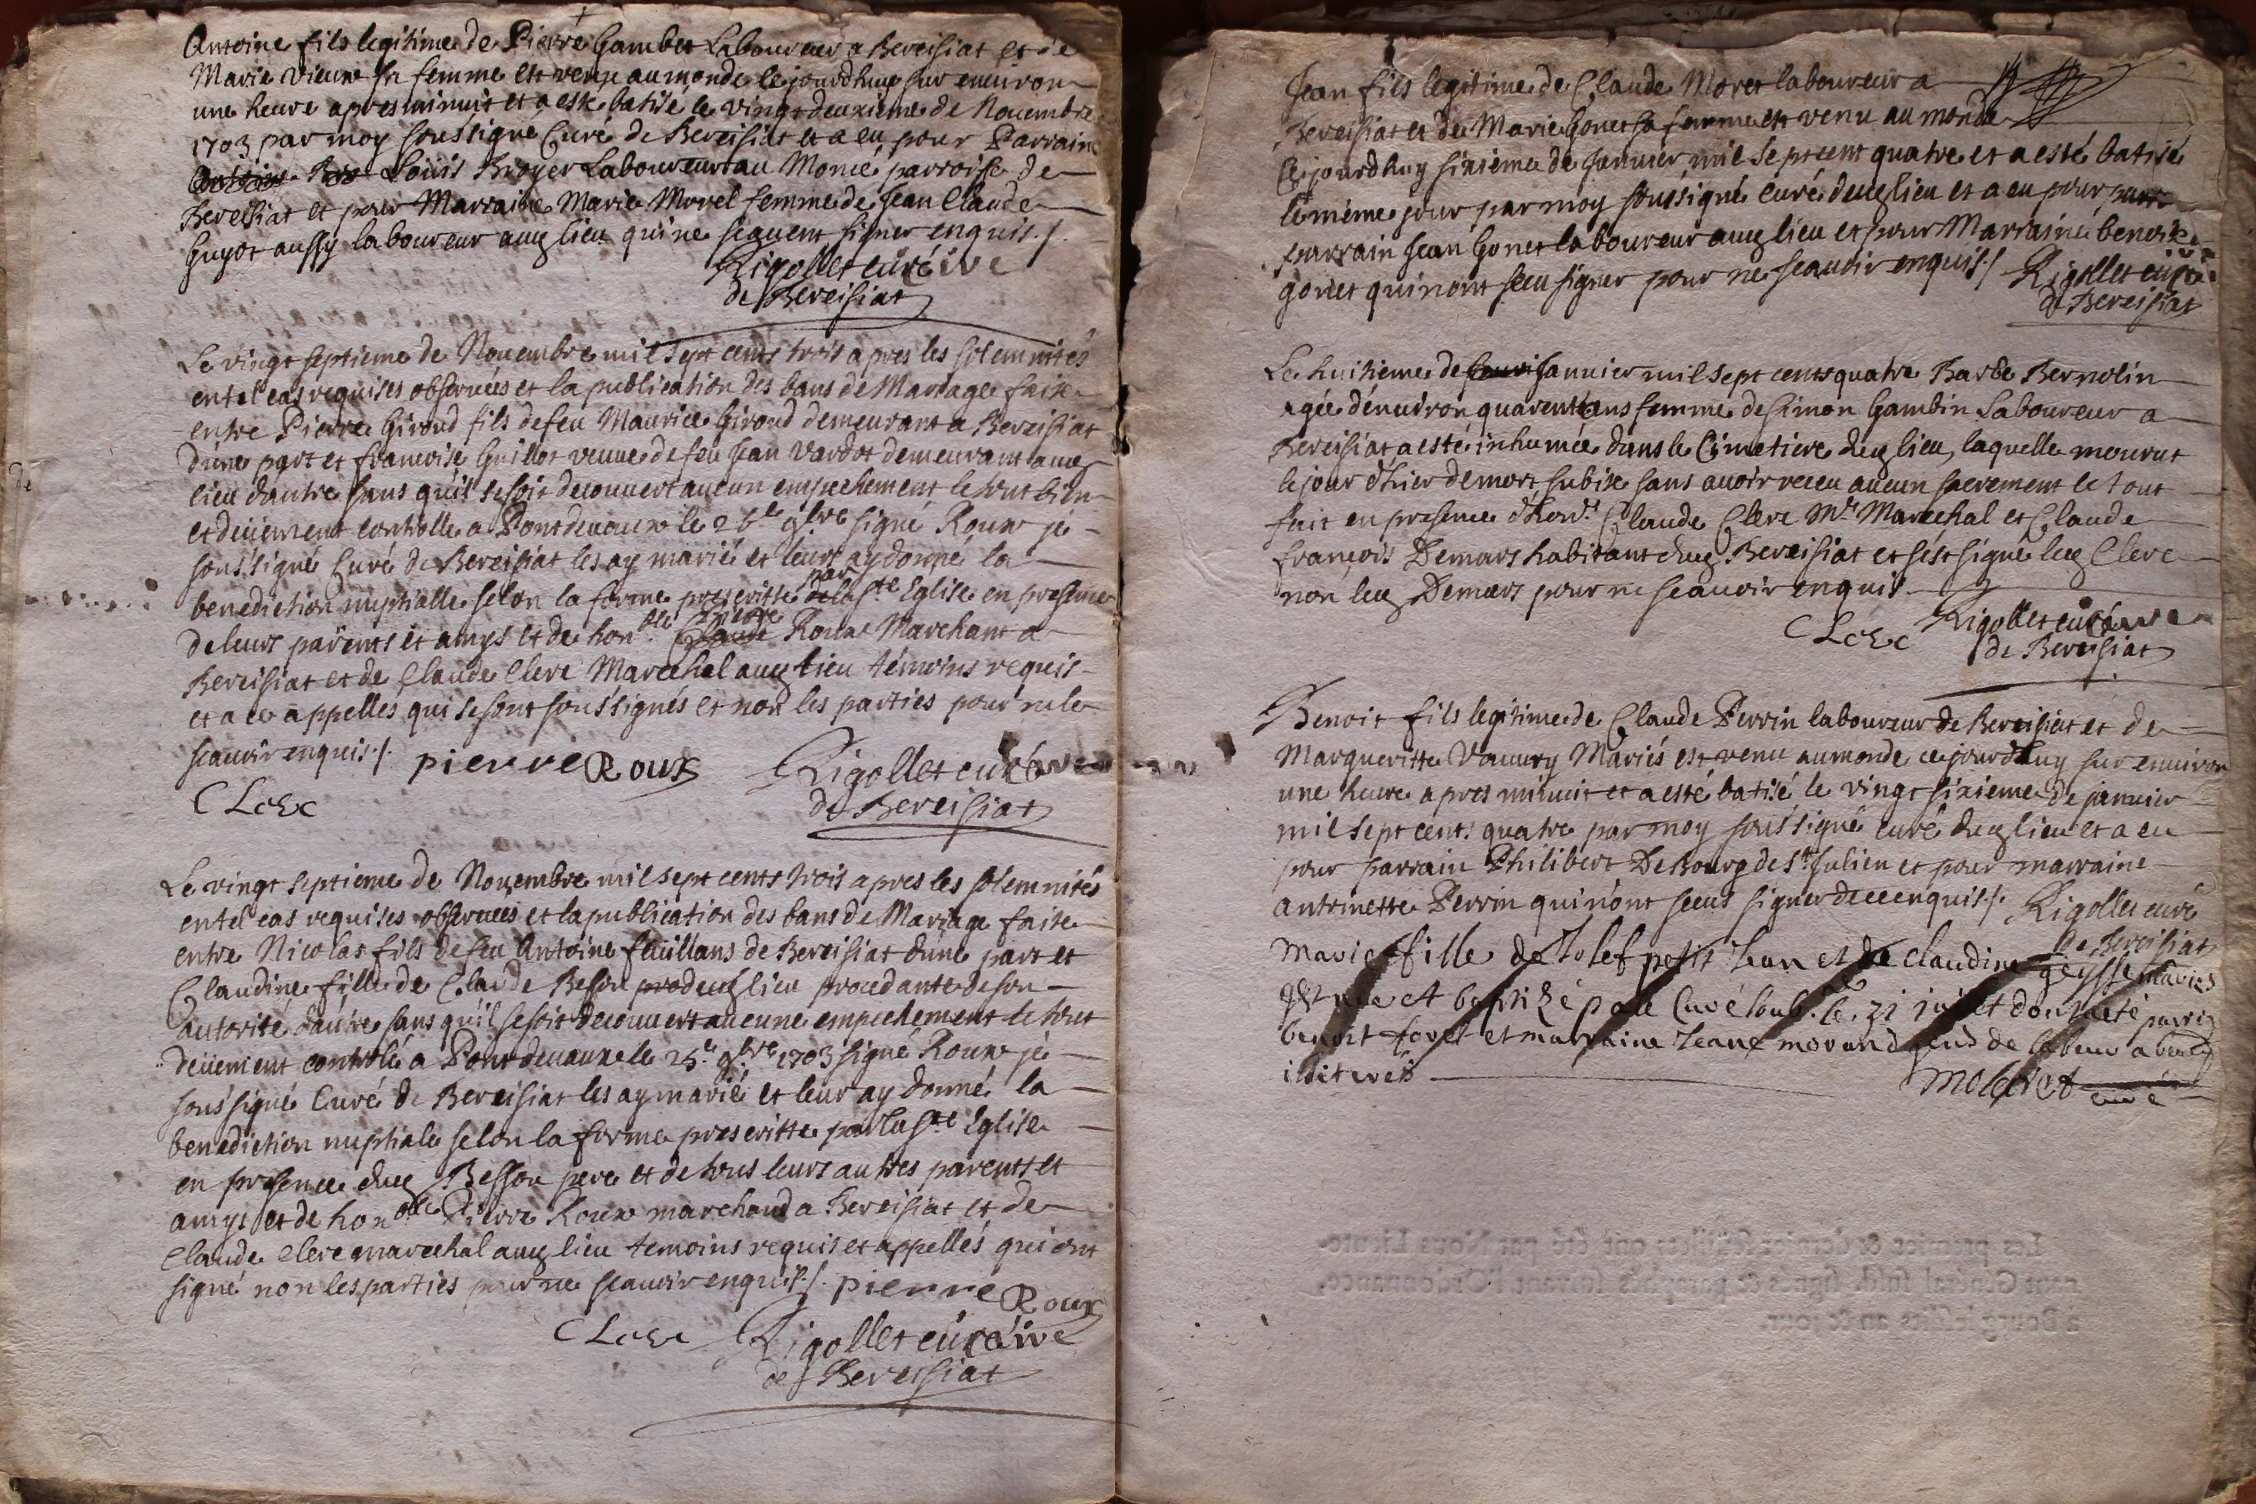 Antoine fils legitime de Pierre Gambet Laboureur a Bereisiat et de
Marie vieume sa femme est venu au monde le jourdhuy sur enuiron
une heure apres minuit et a esté batisé le vingt deuxieme de Nouembre
1703 par moy soussigné Curé de Bereisiat et a eu pour Parrain
Louis Broyer Laboureur au Moncé parroise de
Bereisiat et pour Marraine Marie Morel femme de Jean Claude
Guyot aussy laboureur aud lieu qui ne sçauent signer enquis ./.
Rigollet curé
de Bereisiat
Le vingt septieme de Nouembre mil sept cents trois apres les solemnités
en tel cas requises obseruées et la publication des bans de Mariage faite
entre Pierre Giroud fils de feu Maurice Giroud demeurant a Bereisiat
d'une part et francoise Guillot veuue de feu Jean Vardot demeurant aud
lieu d'autre sans quil se soit decouuert aucun empechement le tout bien
et deüement controlle a Pontdevaux le 26e 9bre signé Roux je
soussigné Curé de Bereisiat les ay marié et leur ay donné la
benediction nuptialle selon la forme prescritte par la ste Eglise en presence
de leurs parents et amys et de honble Pierre Roux Marchant a
Bereisiat et de Claude Clerc Marechal aud lieu témoins requis
et a ce appelles qui se sont soussignés et non les parties pour ne le
scauoir enquis ./. pierre Roux Rigollet curé
CLerc de Bereisiat
Le vingt septieme de Nouembre mil sept cents trois apres les solemnités
en tel cas requises obseruées et la publication des bans de Mariage faite
entre Nicolas fils de feu Antoine feüillans de Bereisiat dune part et
Claudine fille de Claude Besson prodeud lieu procedante de son
autorité dautre sans qu'il se soit decouuert aucune empechement le tout
deüement controlé a Pont deuaux le 25e 9bre 1703 signé Roux je
soussigné Curé de Bereisiat les ay marié et leur ay donné la
benediction nuptiale selon la forme prescritte par la ste Eglise
en presence dud Besson pere et de tous leurs autres parents et
amys et de honoble Pierre Roux marchand a Bereisiat et de
Claude Clerc marechal aud lieu temoins requis et appellés qui ont
signé non les parties pour ne scauoir enquis ./. pierre Roux
CLerc Rigollet curé
de Bereisiat
Jean fils legitime de Claude Moret laboureur a
Bereisiat et de Marie Gonet sa femme est venu au monde
ce jourdhuy sixieme de Januier mil sept cent quatre et a esté batisé
le même jour par moy soussigné curé dud lieu et a eu pour
parrain Jean Gonet laboureur aud lieu et pour Marraine benoite
gonet qui n'ont sceu signer pour ne scauoir enquis ./. Rigollet curé
de Bereisiat
Le huitieme de Januier mil sept cents quatre Barbe Bernolin
agée d'enuiron quarente ans femme de Simon Gambin Laboureur a
Bereisiat a esté inhumée dans le Cimetiere dud lieu, laquelle mourut
le jour d'hier de mort subite sans auoir receu aucun sacrement le tout
fait en presence d'honr. Claude Clerc Me Marechal et Claude
francois Demars habitant dud Bereisiat et s'est signé led Clerc
non led Demars pour ne scauoir enquis
CLerc Rigollet curé
de Bereisiat
Benoit fils legitime de Claude Perrin laboureur de Bereisiat et de
Margueritte Vauury Mariés est venu au monde ce jourdhuy sur enuiron
une heure apres minuit et a esté batisé le vingt sixieme de januier
mil sept cents quatre par moy soussigné curé dud lieu et a eu
pour parrain Philibert DeBourg de St Julien et pour marraine
antoinette Perrin qui n'ont sceus signer de ce enquis ./. Rigollet curé
de Bereisiat
Marie fille de Josef petit Jean et de claudine geysse mariez
est nee et baptizé par le Curé soub. le 21 juillet dont a eté parrin
benoit foret et marraine Jeane morand
illiterés
curé
Les premier & dernier feüillets ont été par Nous Lieute-
nant Général susd. signés & paraphés suivant l'Ordonnance,
à Bourg lesdits an & jour.